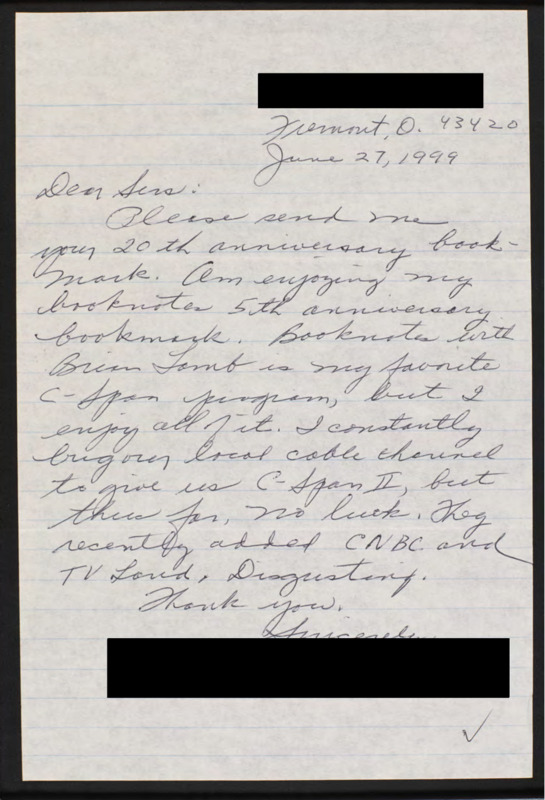 Fremont, O. 43420
June 27, 1999
Dear Sirs:
Please send me
your 20th anniversary book-
mark. Am enjoying my
booknotes 5th anniversary
bookmark. Booknotes with
Brian Lamb is my favorite
C-Span program, but I
enjoy all of it. I constantly
bug our local cable channel
to give us C-Span II, but
thus far, no luck. They
recently added CNBC and
TV Land. Disgusting.
Thank you.
Sincerely